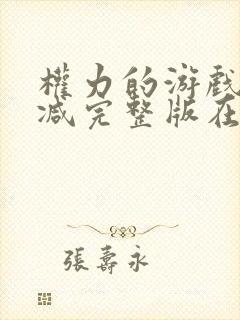 權力的游戲
减完整版在
張壽永